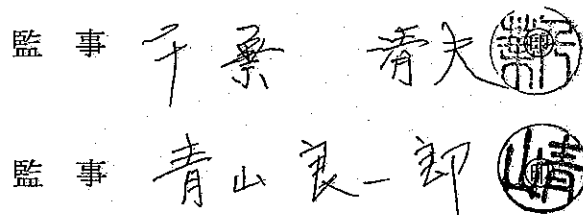 監事 千葉 青夫
監事 青山 良一郎